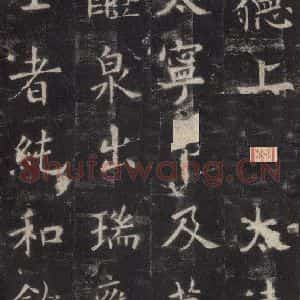 德上太清
太寧及萬
醴泉出瑞應
王者純和飲
Shufawang.CN